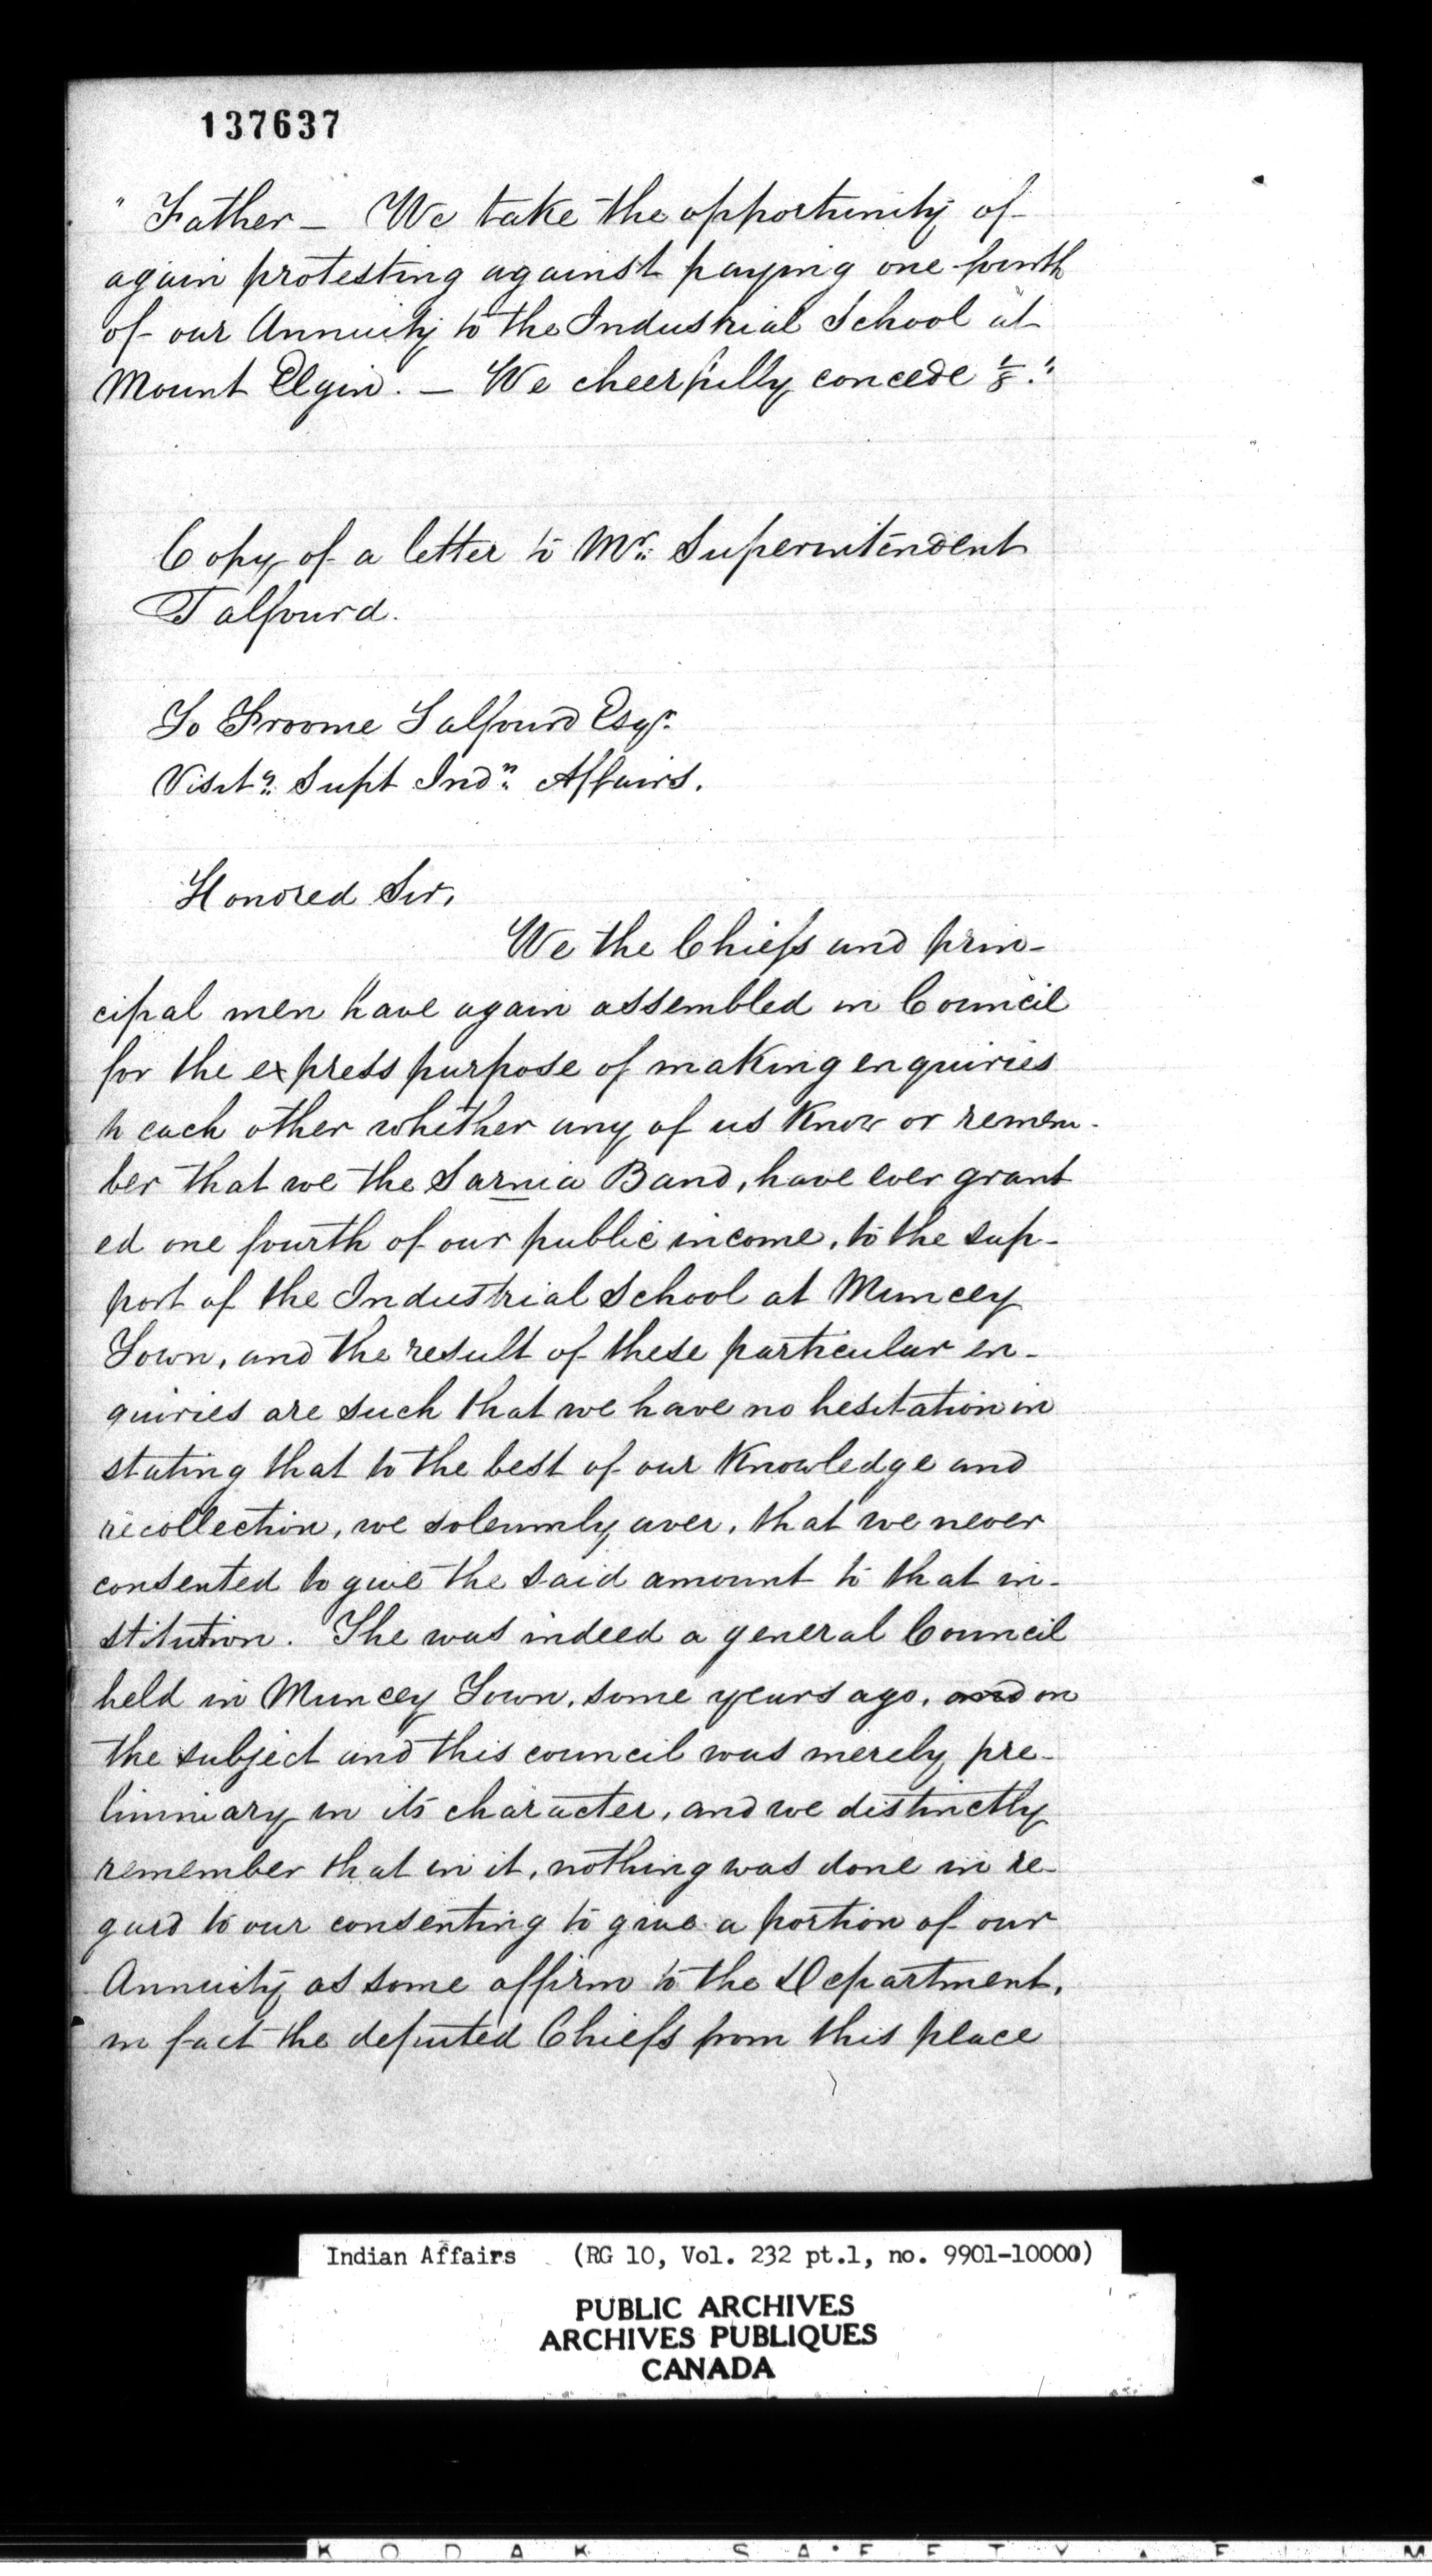 137637
" Father — We take the opportunity of
again protesting against paying one-fourth
of our Annuity to the Industrial School at
Mount Elgin. — We cheerfully concede 1/8."
Copy of a letter to Mr. Superintendent
Talfourd.
To Froome Talfourd Esqr.
Visitg. Supt Indn. Affairs.
Honored Sir,
We the Chiefs and prin-
cipal men have again assembled in Council
for the express purpose of making enquiries
h each other whether any of us Know or remem-
ber that we the Sarnia Band, have ever grant
ed one fourth of our public income, to the sup-
port of the Industrial School at Muncey
Town, and the result of these particular en-
quiries are such that we have no hesitation in
stating that to the best of our Knowledge and
recollection, we solemnly aver, that we never
consented to give the said amount to that in-
stitution. The was indeed a general Council
held in Muncey Town, some years ago, and on
the subject and this council was merely pre-
liminary in its character, and we distinctly
remember that in it, nothing was done in re-
gard to our consenting to give a portion of our
Annuity as some affirm to the Department,
in fact the deputed Chiefs from this place
Indian Affairs (RG 10, Vol. 232 pt.1, no. 9901-10000)
PUBLIC ARCHIVES
ARCHIVES PUBLIQUES
CANADA
KODAK SAFETY FILM